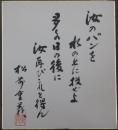 汝のパンを
水の上に投せよ
多くの日の後に
汝再びこれを得ん
松前重義